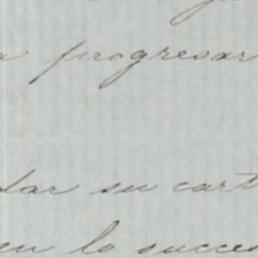 a progresar
dar su cart
en lo succes